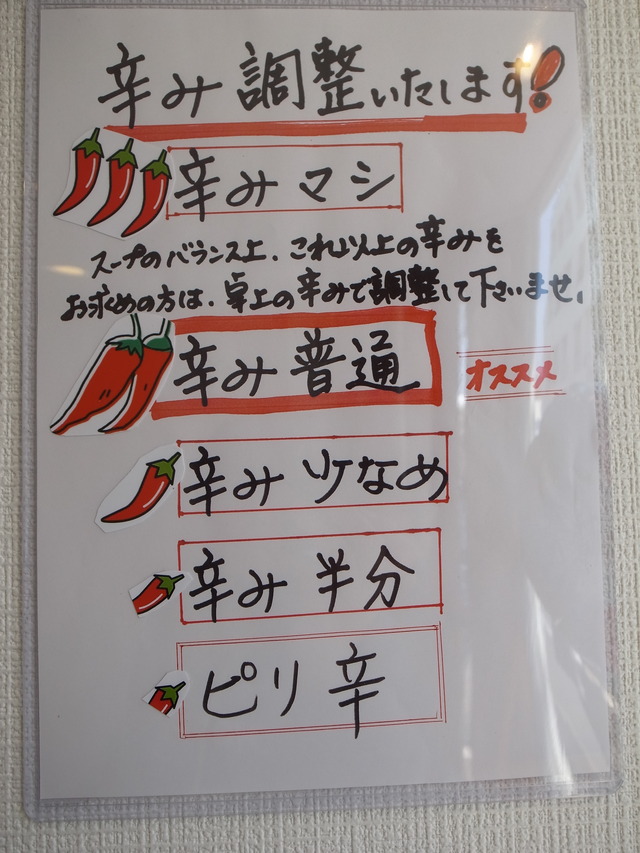 辛み調整いたします!
辛みマシ
スープのバランス上、これ以上の辛みを
お求めの方は、卓上の辛みで調整して下さいませ。
辛み普通
オススメ
辛み少なめ
辛み半分
ピリ辛